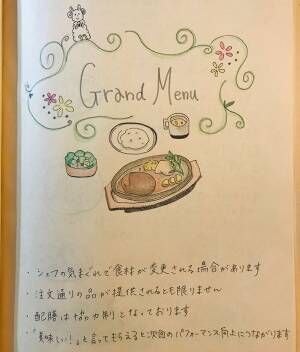 Grand Menu
・シェフの気まぐれで食材が変更される場合があります
・注文通りの品が提供されるとも限りません
・配膳は協力制となっております
・「美味しい!」と言ってもらえると次回のパフォーマンス向上につながります